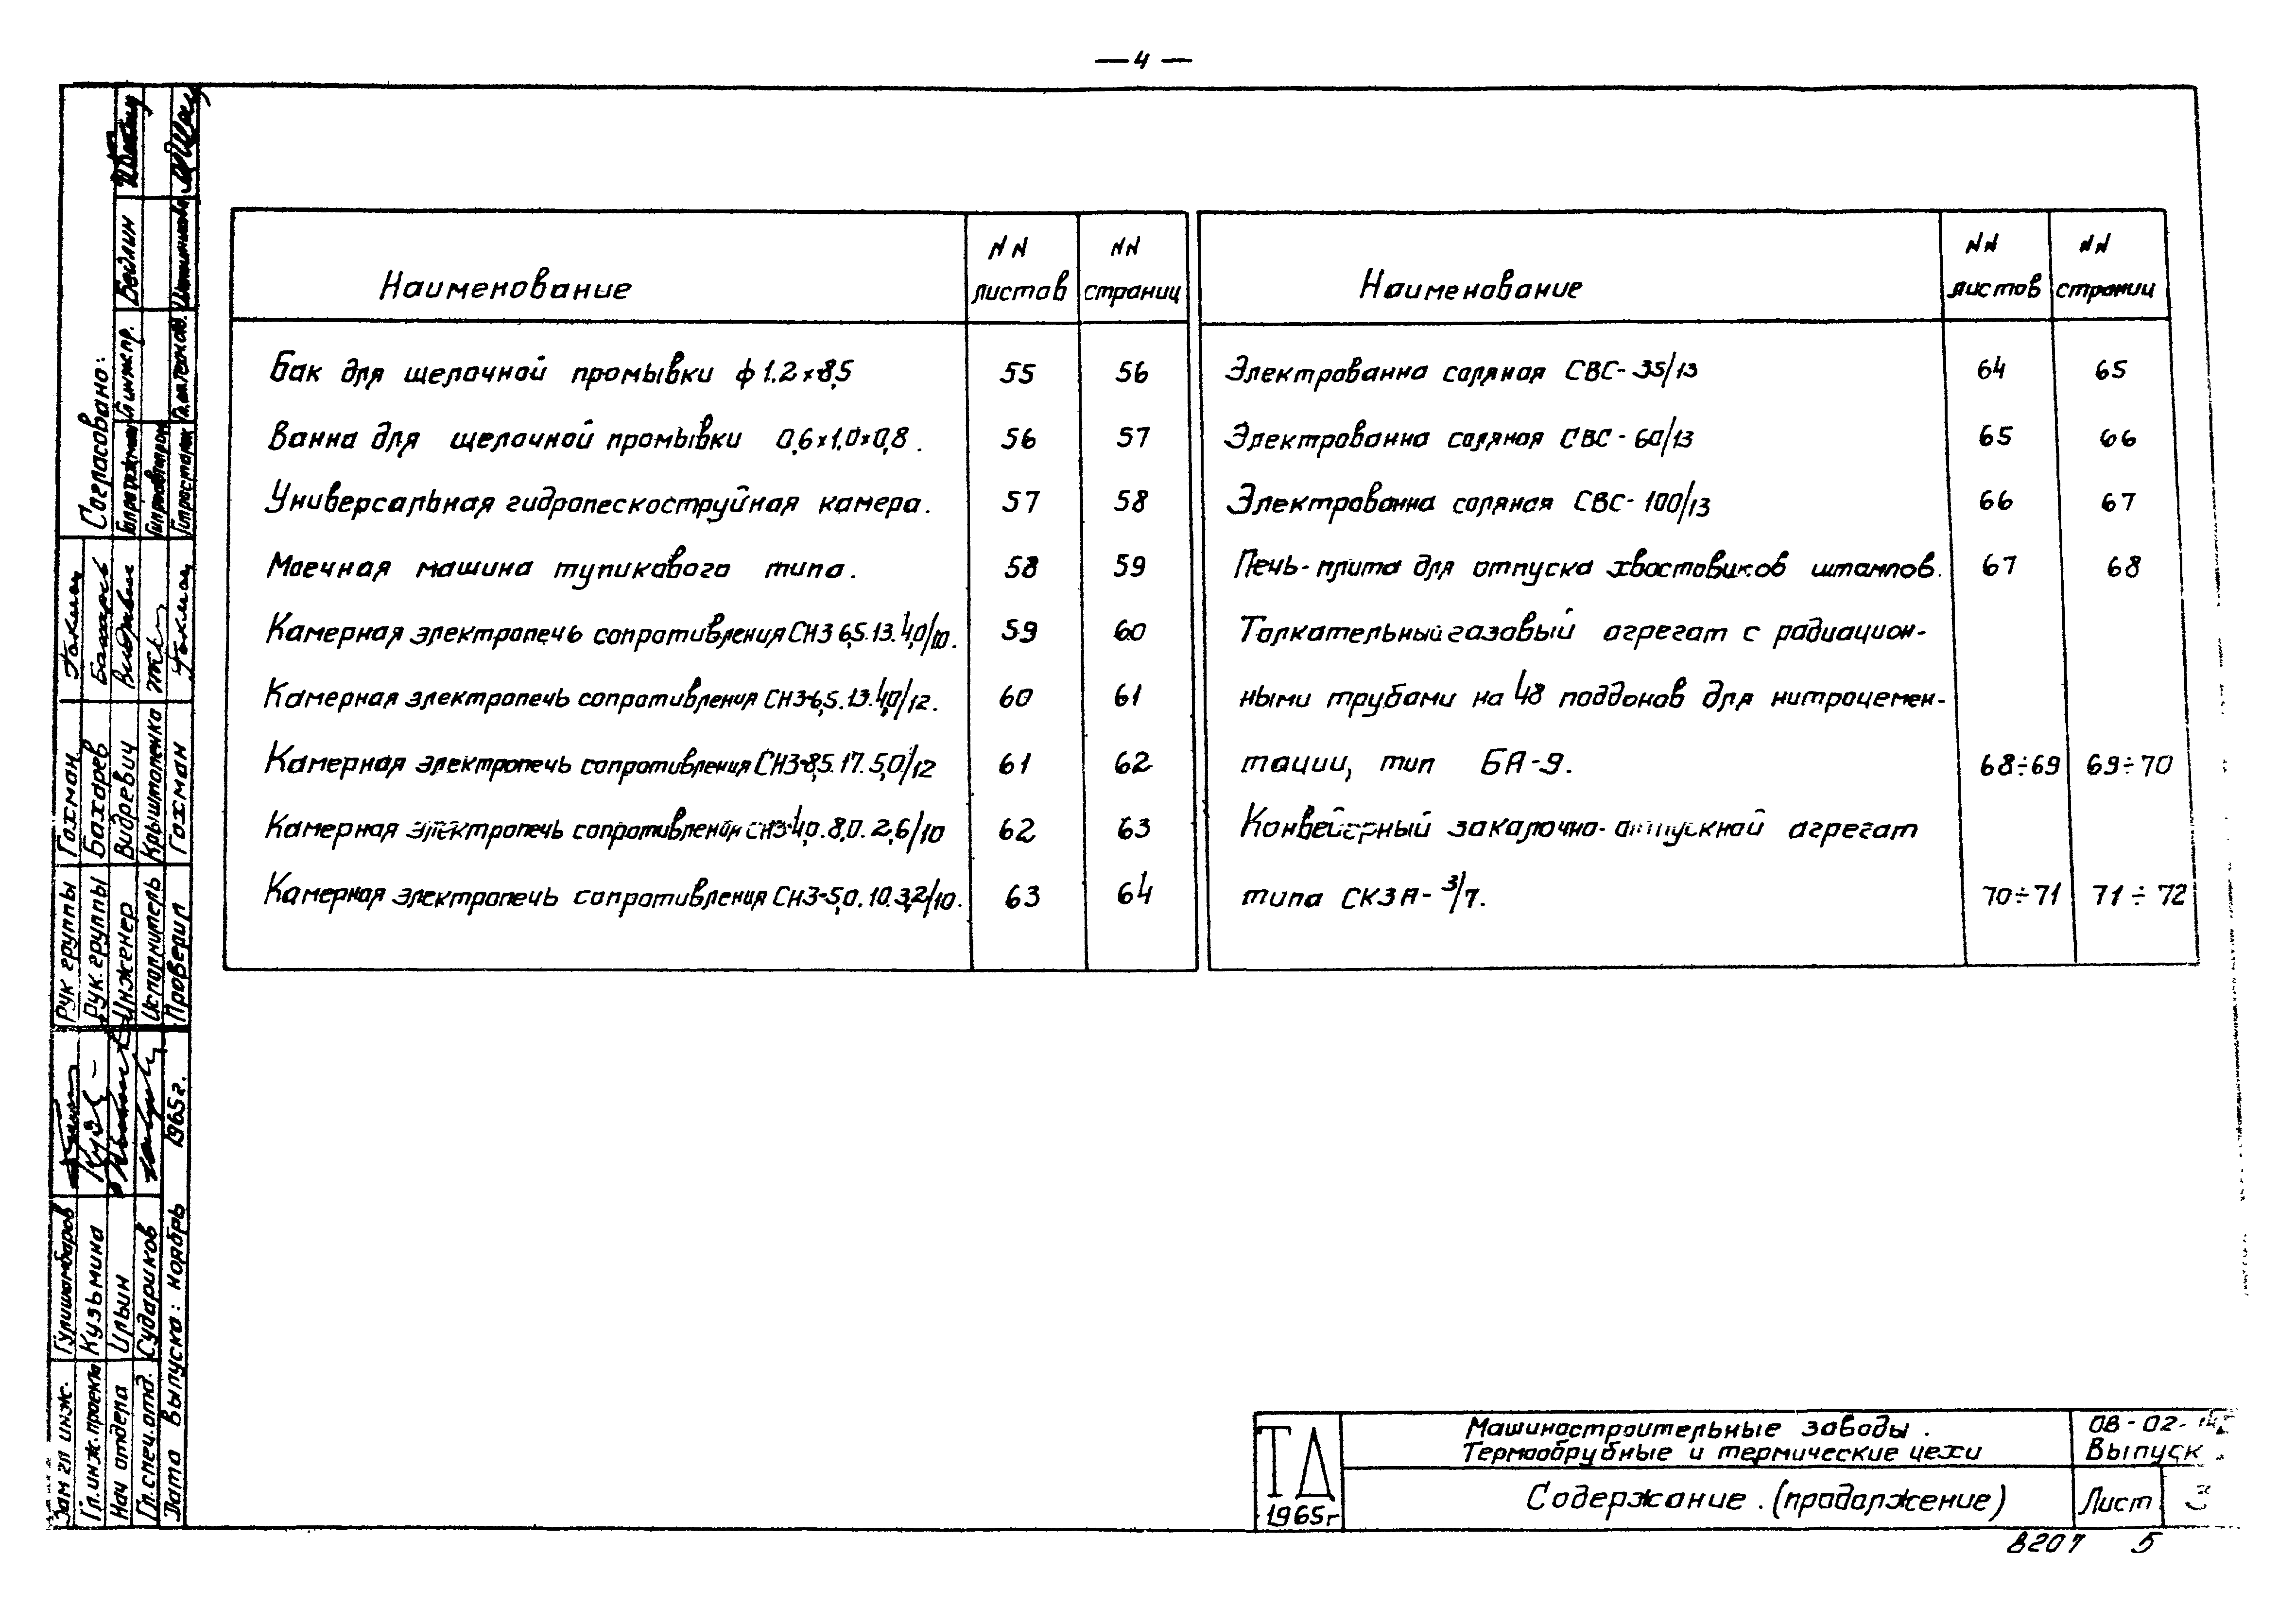 — 4 —
Наименование
NN листов
NN страниц
Бак для щелочной промывки ф 1.2×8,5 55 56
Ванна для щелочной промывки 0,6×1.0×0,8. 56 57
Универсальная гидропескоструйная камера. 57 58
Моечная машина тупикового типа. 58 59
Камерная электропечь сопротивления СНЗ 6,5.13.4,0/10. 59 60
Камерная электропечь сопротивления СНЗ-6,5.13.4,0/12. 60 61
Камерная электропечь сопротивления СНЗ-8,5.17.5,0/12 61 62
Камерная электропечь сопротивления СНЗ-4,0.8,0.2,6/10 62 63
Камерная электропечь сопротивления СНЗ-5,0.10.3,2/10. 63 64
Наименование
NN листов
NN страниц
Электрованна соляная СВС-35/13 64 65
Электрованна соляная СВС-60/13 65 66
Электрованна соляная СВС-100/13 66 67
Печь-плита для отпуска хвостовиков штампов. 67 68
Толкательный газовый агрегат с радиацион-
ными трубами на 48 поддонов для нитроцемен-
тации, тип БА-9. 68÷69 69÷70
Конвейерный закалочно-отпускной агрегат
типа СКЗА-3/7. 70÷71 71÷72
Согласовано:
Гл.инж.пр. Бейлин
Рук группы Гохман
Рук.группы Бахарев
Инженер Видревич
Исполнитель Крыштопенко
Проверил Гохман
Зам гл инж. Гулишамбаров
Гл.инж.проекта Кузьмина
Нач отдела Ильин
Гл.спец.отд. Судариков
Дата выпуска: ноябрь 1965г.
ТД
1965г
Машиностроительные заводы.
Термообрубные и термические цехи
08-02-
Выпуск
Содержание. (продолжение)
Лист 3
8207 5